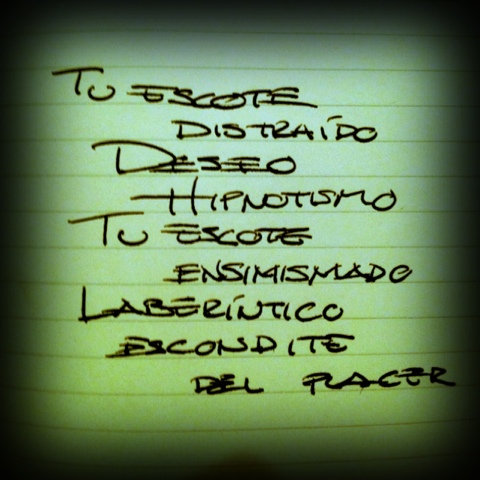 TU ESCOTE
DISTRAÍDO
DESEO
HIPNOTISMO
TU ESCOTE
ENSIMISMADO
LABERÍNTICO
ESCONDITE
DEL PLACER